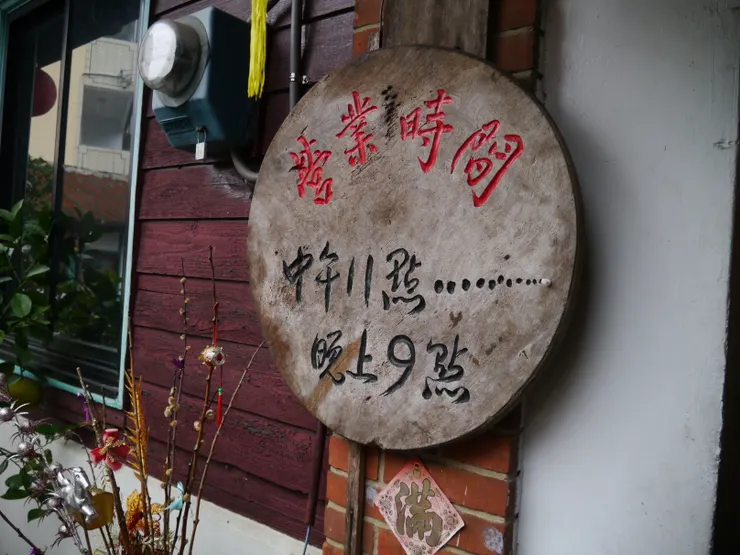 營業時間
中午11點..........
晚上9點
滿